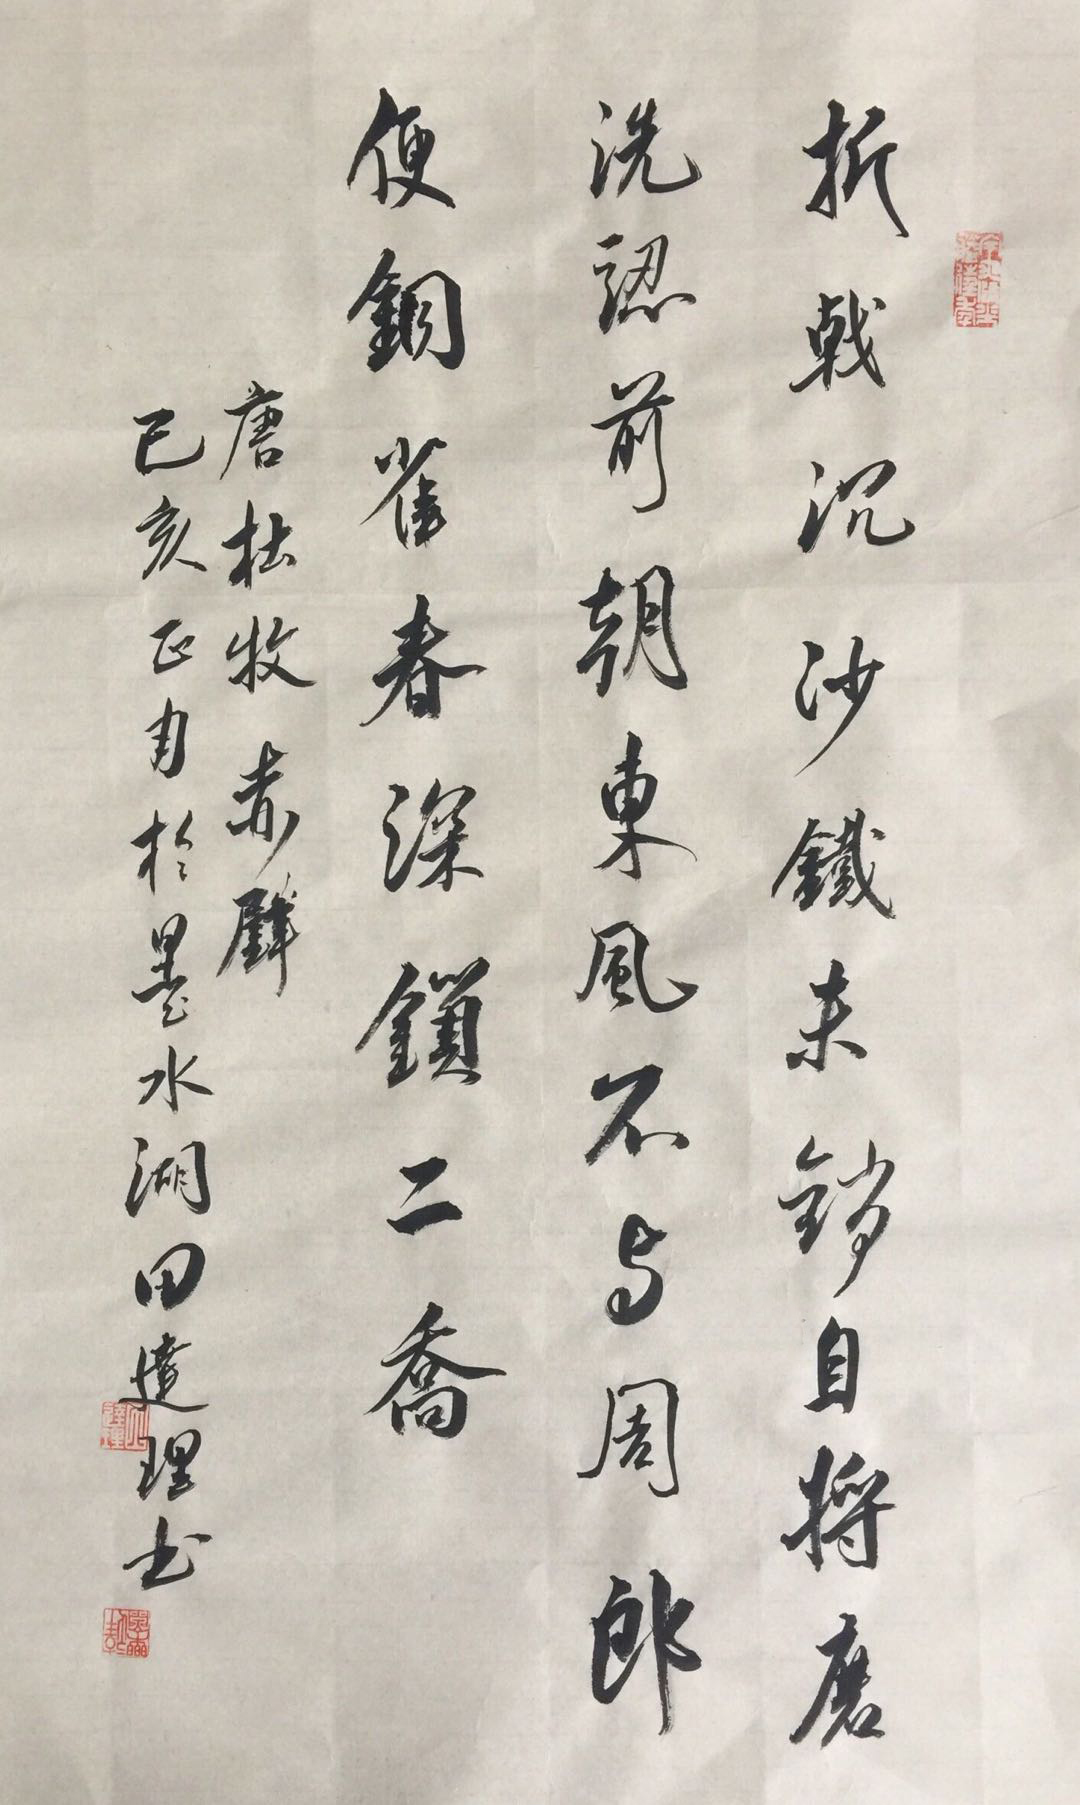 折戟沉沙鐵未銷自將磨
洗認前朝東風不与周郎
便銅雀春深鎖二喬
唐杜牧赤壁
己亥正月於墨水湖田達理书